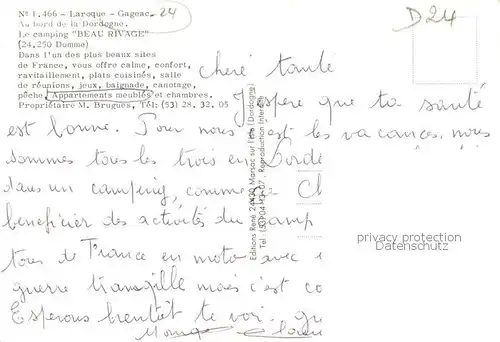 24
D24
N° 1.466 - Laroque - Gageac
Au bord de la Dordogne.
Le camping "BEAU RIVAGE"
(24.250 Domme)
Dans l'un des plus beaux sites
de France, vous offre calme, confort,
ravitaillement, plats cuisinés, salle
de réunions, jeux, baignade, canotage,
pêche. Appartements meublés et chambres.
Propriétaire M. Brugues, Tél: (53) 28. 32. 05
Editions René
Marsac sur l'Isle (Dordogne)
Reproduction interdite
cheré tante
J'espère que ta santé
est bonne. Pour nous c'est les vacances, nous
sommes tous les trois en Dordo
dans un camping, comme Ch
beneficier des activités du camp
tour de France en moto avec
guerre tranquille mais c'est co
Esperons bientôt te voir.
privacy protection
Datenschutz